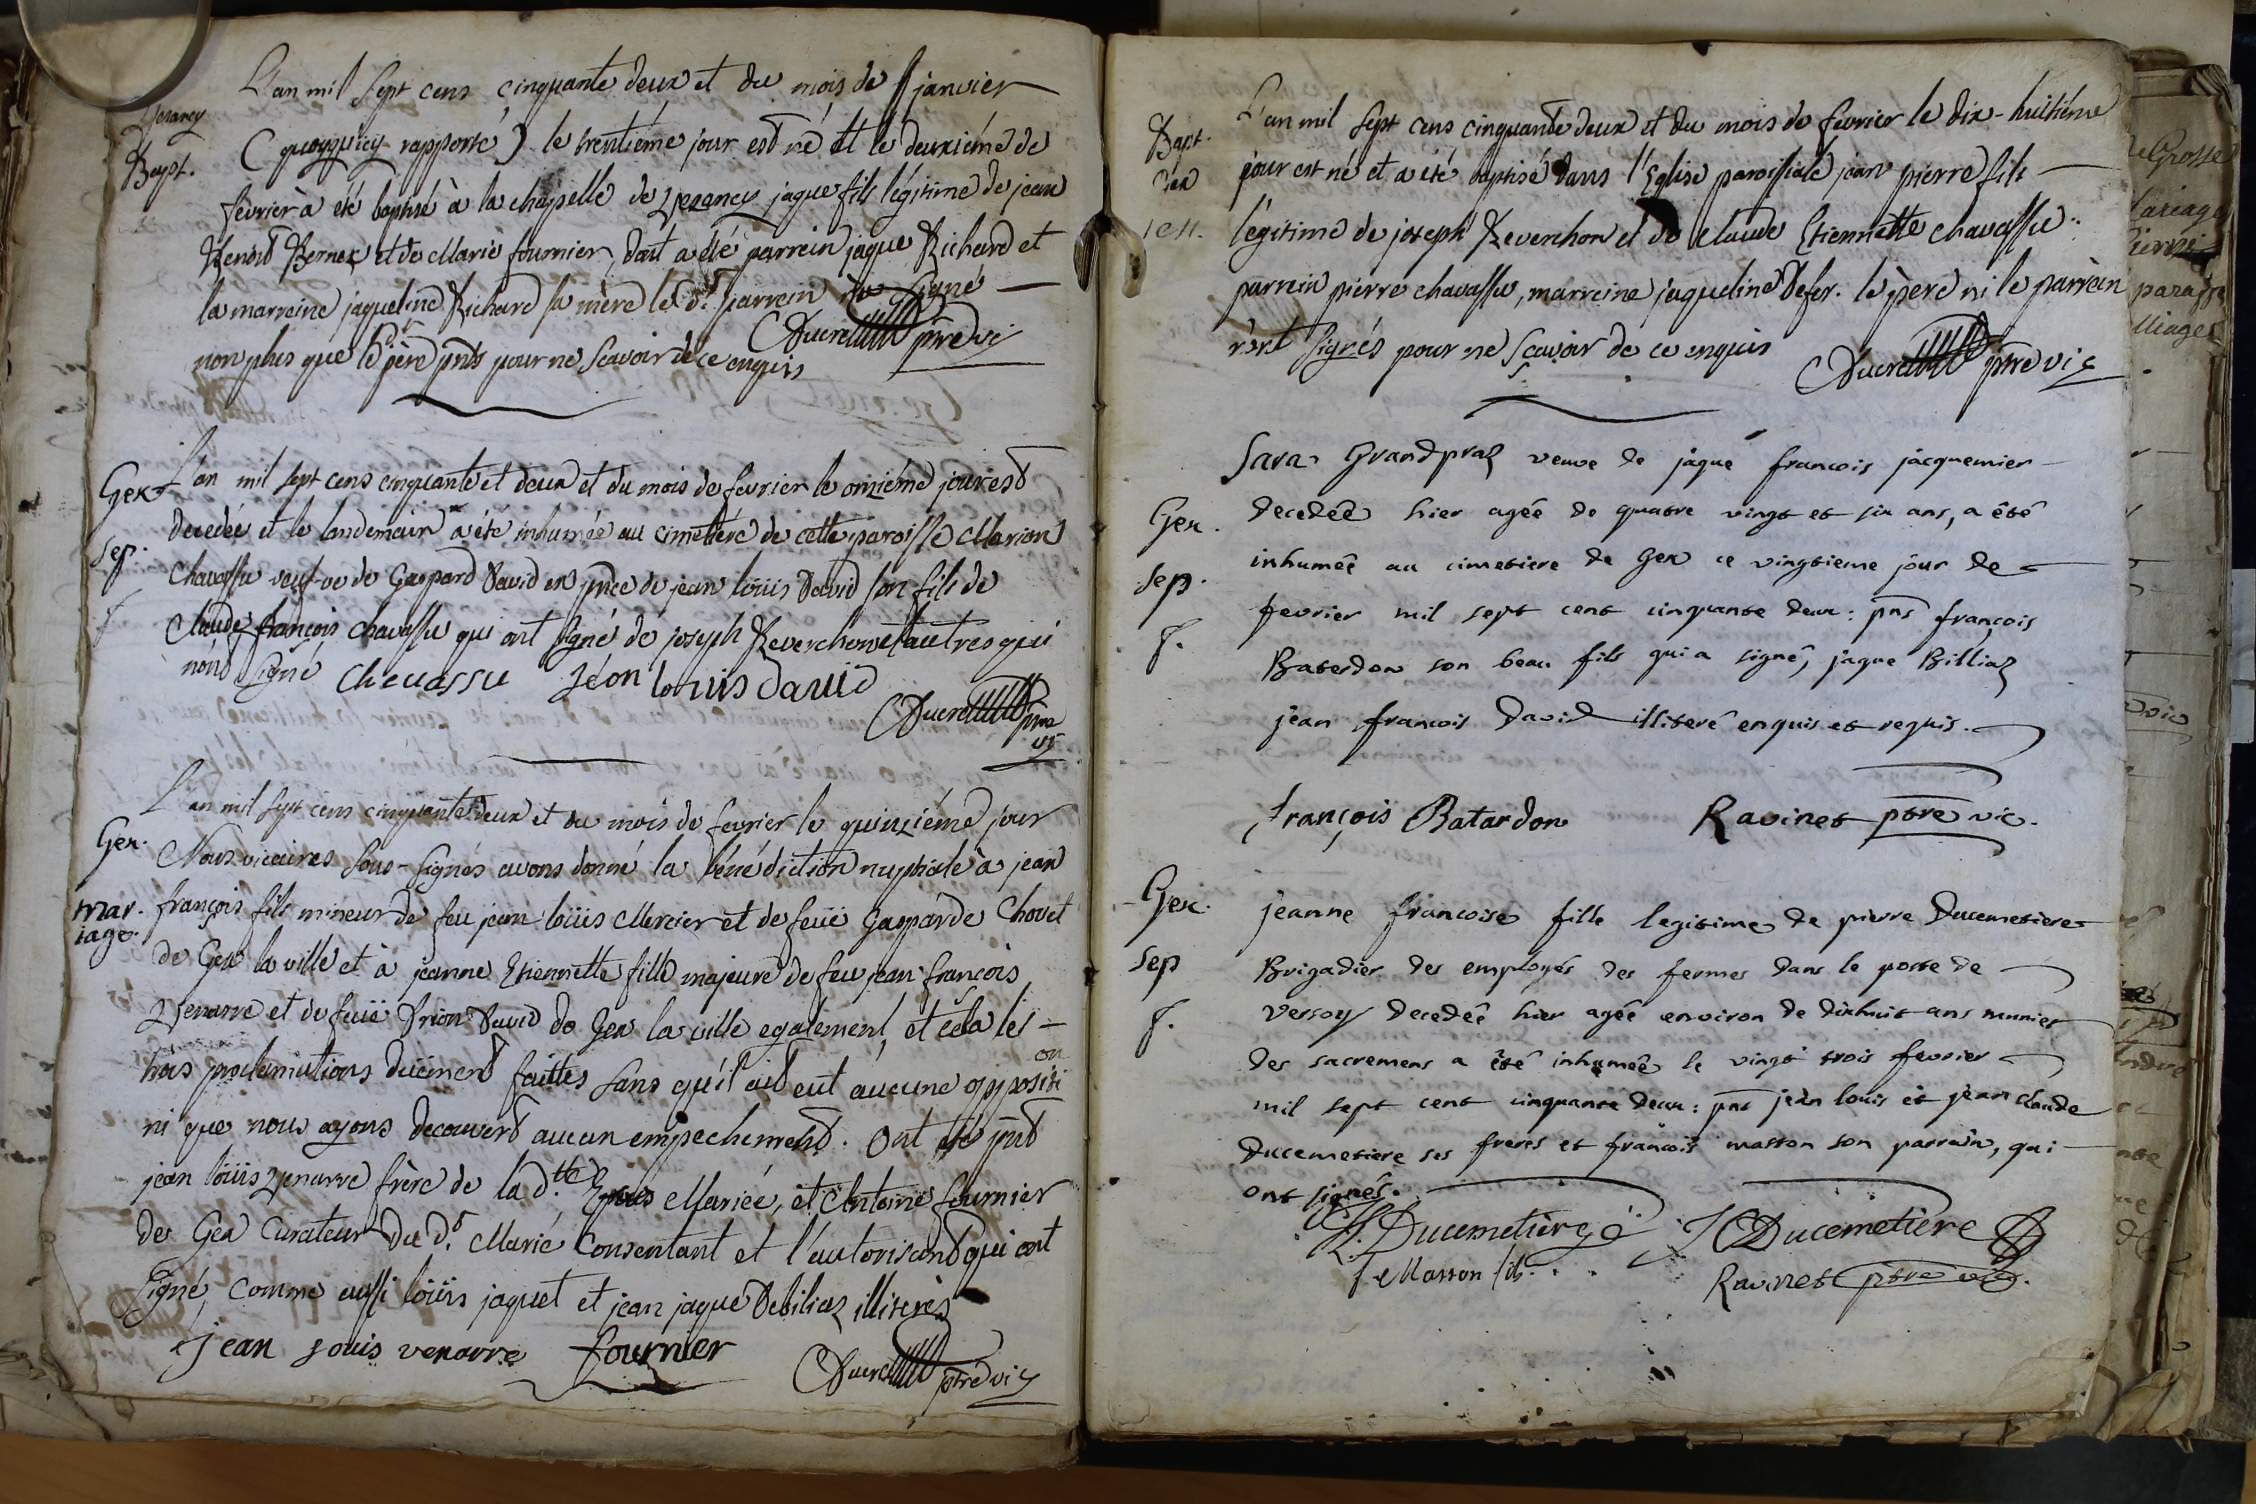 L'an mil sept cens cinquante deux et du mois de janvier
Bapt.
( quoyqu'icy rapporté ) le trentiéme jour est né et le deuxiéme de
février à été baptisé à la chapelle de jaque fils légitime de jean
Benoit Bernex et de Marie fournier, dont a été parrein jaque Richard et
la marreine jaqueline Richard sa mère le d.t parrein signé
non plus que le père pnts pour ne scavoir de ce enquis
ptre vic
Gex
L'an mil sept cens cinquante et deux et du mois de fevrier le onziéme jour est
decedée et le landemain a été inhumée au cimetiére de cette paroisse Marion
sep.
chavassu veufve de Gaspard David en pnce de jean loüis David son fils de
Claude françois chavassu qui ont signé de joseph Reverchon et autres qui
f
n'ont signé Chevassu Jéon louis david
ptre
vic
Gex.
L'an mil sept cens cinquante deux et du mois de fevrier le quinziéme jour
Nous vicaires sous-signés avons donné la bénédiction nuptiale à jean
mar.
iage.
françois fils mineur de feu jean loüis Mercier et de feüe Gasparde Chovet
de Gex la ville et à jeanne Etiennette fille majeure de feu jean françois
Venarre et de feüe David de Gex la ville egalement, et cela les
trois proclamations düement faittes sans qu'il ait eut aucune oppositi
on
ni que nous ayons decouvert aucun empechement. Ont été pnt
jean loüis Venarre frère de la d.tte Mariée, et Antoine fournier
de Gex Curateur du d.t Marié Consentant et l'autorisant qui ont
signé, comme aussi loüis jaquet et jean jaque Debiliaz illiterés
jean louis venarre fournier
ptre vic
Bapt.
Gex
L'an mil sept cens cinquante deux et du mois de fevrier le dix-huitiéme
jour est né et a été baptisé dans l'Eglise paroissiale jean pierre fils
légitime de joseph Reverchon et de Claude Etiennette chavassu:
parrein pierre chavassu, marreine jaqueline Defer. le père ni le parrein
n'ont signés pour ne scavoir de ce enquis
ptre vic
Sara Grandpraz veuve de jaque francois jacquemier
Gex.
decedée hier agée de quatre vingt et six ans, a êté
inhumée au cimetiere de Gex ce vingtieme jour de
sep.
fevrier mil sept cent cinquante deux: pns françois
f.
Baterdon son beau fils qui a signé, jaque Billiaz
jean francois David illiteré enquis et requis.
françois Batardon Ravinet ptre vic.
Gex.
jeanne francoise fille legitime de pierre Ducemetiere
sep
Brigadier des employés des fermes dans le poste de
f.
Versoy decedée hier agée environ de dixhuit ans munier
des sacremens a êté inhumée le vingt trois fevrier
mil sept cent cinquante deux: pnt jean louis et jean claude
Ducemetiere ses freres et francois masson son parrain, qui
ont signés.
Ducemetière JC Ducemetiere
f Masson fils Ravinet ptre vic.